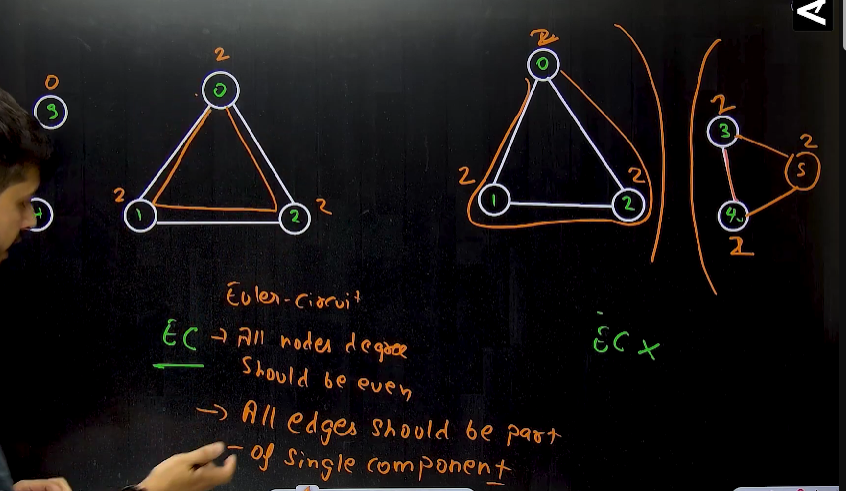 0
2
2
2
9
0
0
3
2
5
2
2
2
1
2
1
2
4
2
1
2
2
Euler-Circuit
EC → All nodes degree
should be even
EC x
→ All edges should be part
- of single component